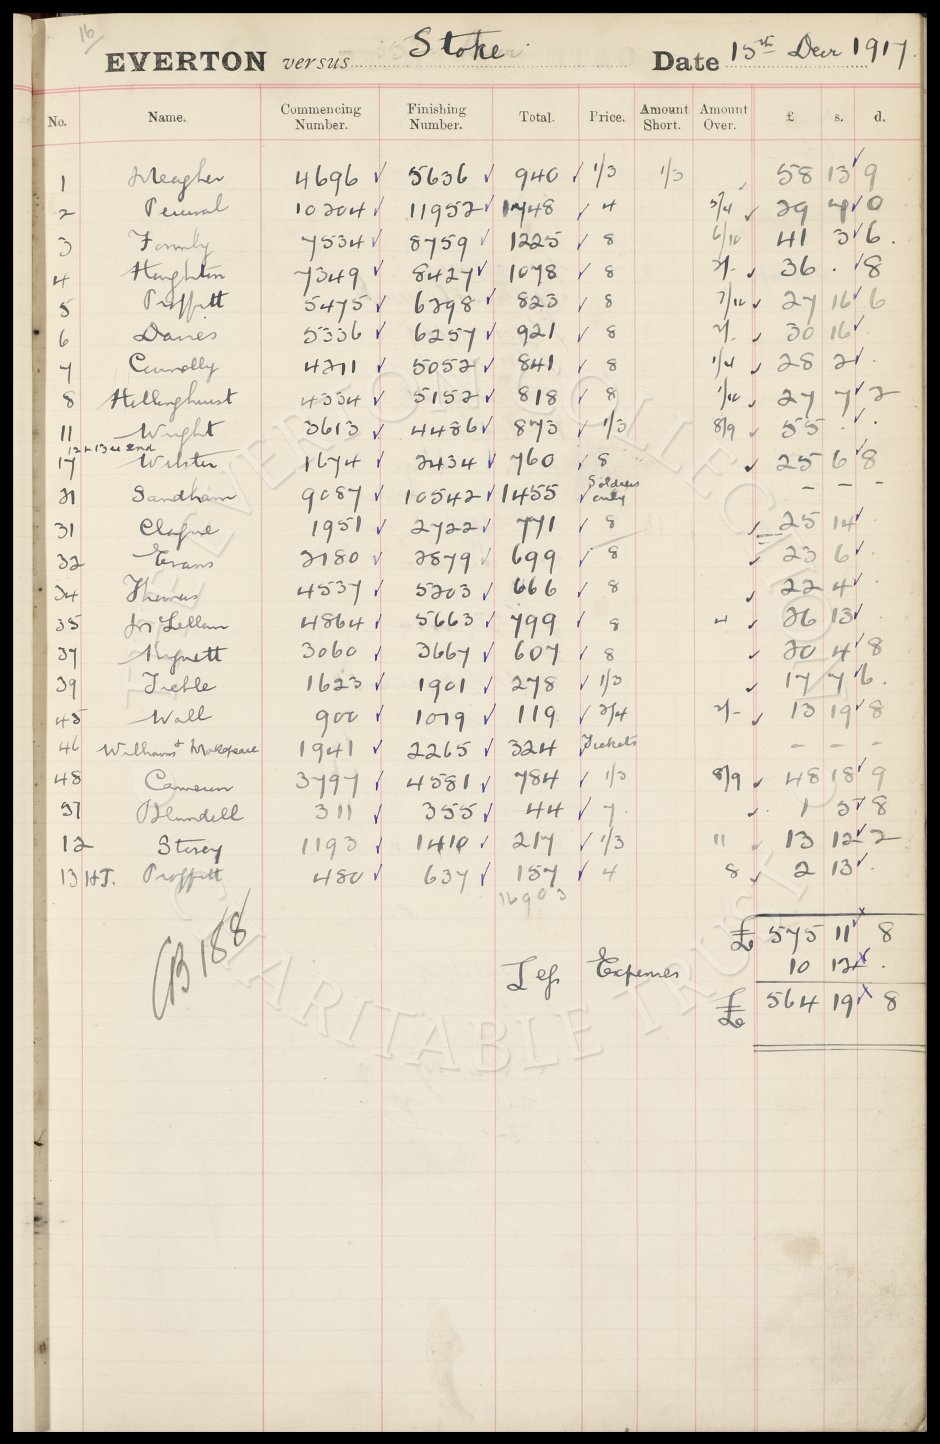 16/
EVERTON versus Stoke Date 15th Decr 1917.
No. Name. Commencing Number. Finishing Number. Total. Price. Amount Short. Amount Over. £ s. d.
1 Meagher 4696 ✓ 5636 ✓ 940 ✓ 1/3 1/3 58 13 ✓ 9
2 Percival 10204 ✓ 11952 ✓ 1748 ✓ 4 5/4 ✓ 29 7 ✓ 0
3 Formby 7534 ✓ 8759 ✓ 1225 ✓ 8 6/10 41 3 ✓ 6.
4 Houghton 7349 ✓ 8427 ✓ 1078 ✓ 8 2/- ✓ 36 . ✓ 8
5 Proffitt 5475 ✓ 6298 ✓ 823 ✓ 8 7/10 ✓ 27 16 ✓ 6
6 Davies 5336 ✓ 6257 ✓ 921 ✓ 8 2/- ✓ 30 16 ✓ .
7 Connolly 4211 ✓ 5052 ✓ 841 ✓ 8 1/4 ✓ 28 2 ✓ .
8 Hillinghurst 4334 ✓ 5152 ✓ 818 ✓ 8 1/10 ✓ 27 7 ✓ 2
11 Wright 3613 ✓ 4486 ✓ 873 ✓ 1/3 8/9 ✓ 55 . ✓ .
17 Webster 1674 ✓ 2434 ✓ 760 ✓ 8 ✓ 25 6 ✓ 8
21 Sandham 9087 ✓ 10542 ✓ 1455 ✓ Soldiers only - - -
31 Clague 1951 ✓ 2722 ✓ 771 ✓ 8 ✓ 25 14 ✓ .
32 Evans 2180 ✓ 2879 ✓ 699 ✓ 8 ✓ 23 6 ✓ .
34 Thomas 4537 ✓ 5203 ✓ 666 ✓ 8 ✓ 22 4 ✓ .
35 McLellan 4864 ✓ 5663 ✓ 799 ✓ 8 4 ✓ 26 13 ✓
37 Hignett 3060 ✓ 3667 ✓ 607 ✓ 8 ✓ 20 4 ✓ 8
39 Treble 1623 ✓ 1901 ✓ 278 ✓ 1/3 ✓ 17 7 ✓ 6.
45 Wall 900 ✓ 1019 ✓ 119 ✓ 2/4 2/- ✓ 13 19 ✓ 8
46 Williams + Makepeace 1941 ✓ 2265 ✓ 324 ✓ Tickets - - -
48 Cameron 3797 ✓ 4581 ✓ 784 ✓ 1/3 8/9 ✓ 48 18 ✓ 9
51 Blundell 311 ✓ 355 ✓ 44 ✓ 7. ✓ 1 5 ✓ 8
12 Storey 1193 ✓ 1410 ✓ 217 ✓ 1/3 11 ✓ 13 12 ✓ 2
13 H.T. Proffitt 480 ✓ 637 ✓ 157 ✓ 4 8 ✓ 2 13 ✓ .
16903
£ 575 11 8
CB 188
Less Expenses 10 12 .
£ 564 19 8
EVERTON COLLECTION
CHARITABLE TRUST